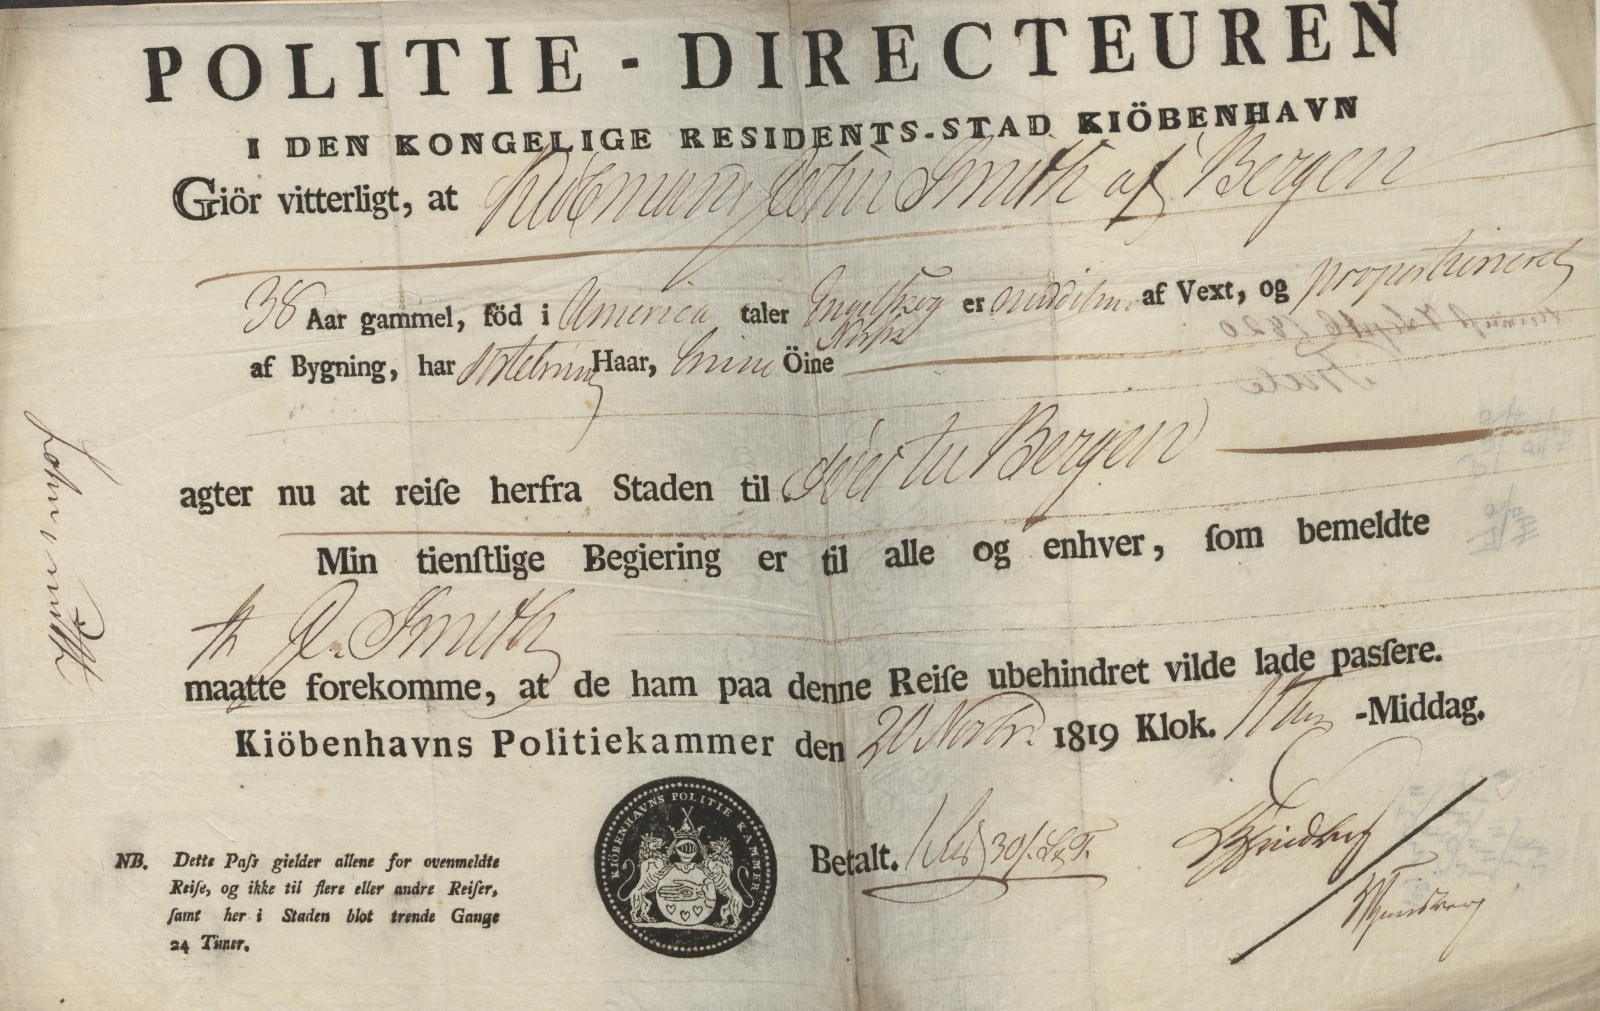 POLITIE - DIRECTEUREN
I DEN KONGELIGE RESIDENTS-STAD KIÖBENHAVN
Giör vitterligt, at Kiöbmand John Smith af Bergen
38 Aar gammel, föd i America taler Engelsk og Norsk er middelm af Vext, og proportioneret
af Bygning, har Haar, Öine
agter nu at reiſe herfra Staden til Bergen
Min tienſtlige Begiering er til alle og enhver, ſom bemeldte
Smith
maatte forekomme, at de ham paa denne Reiſe ubehindret vilde lade paſſere.
Kiöbenhavns Politiekammer den 20 Novbr. 1819 Klok. -Middag.
KIÖBENHAVNS POLITIE KAMMER
Betalt.
NB. Dette Paſs gielder allene for ovenmeldte
Reiſe, og ikke til flere eller andre Reiſer,
ſamt her i Staden blot trende Gange
24 Timer.
John Smith